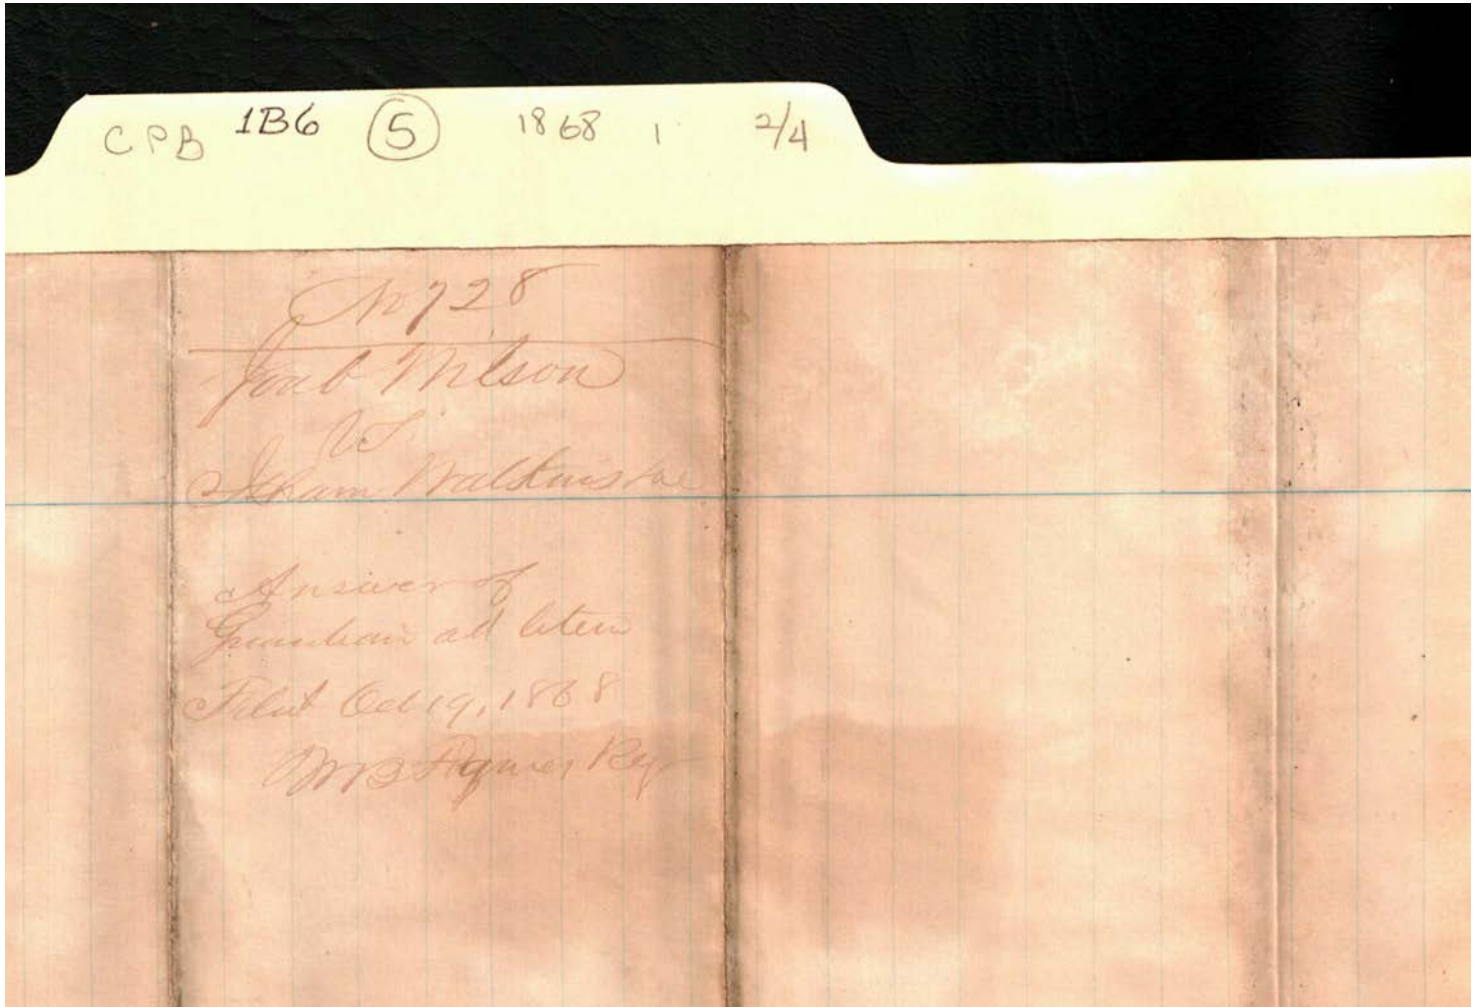 CPB 1B6 5 1868 1 2/4
No 728
Joab Wilson
vs
Isham Watkins &al
Answer of
Guardian ad litem
Filed Oct 19, 1868
Reg